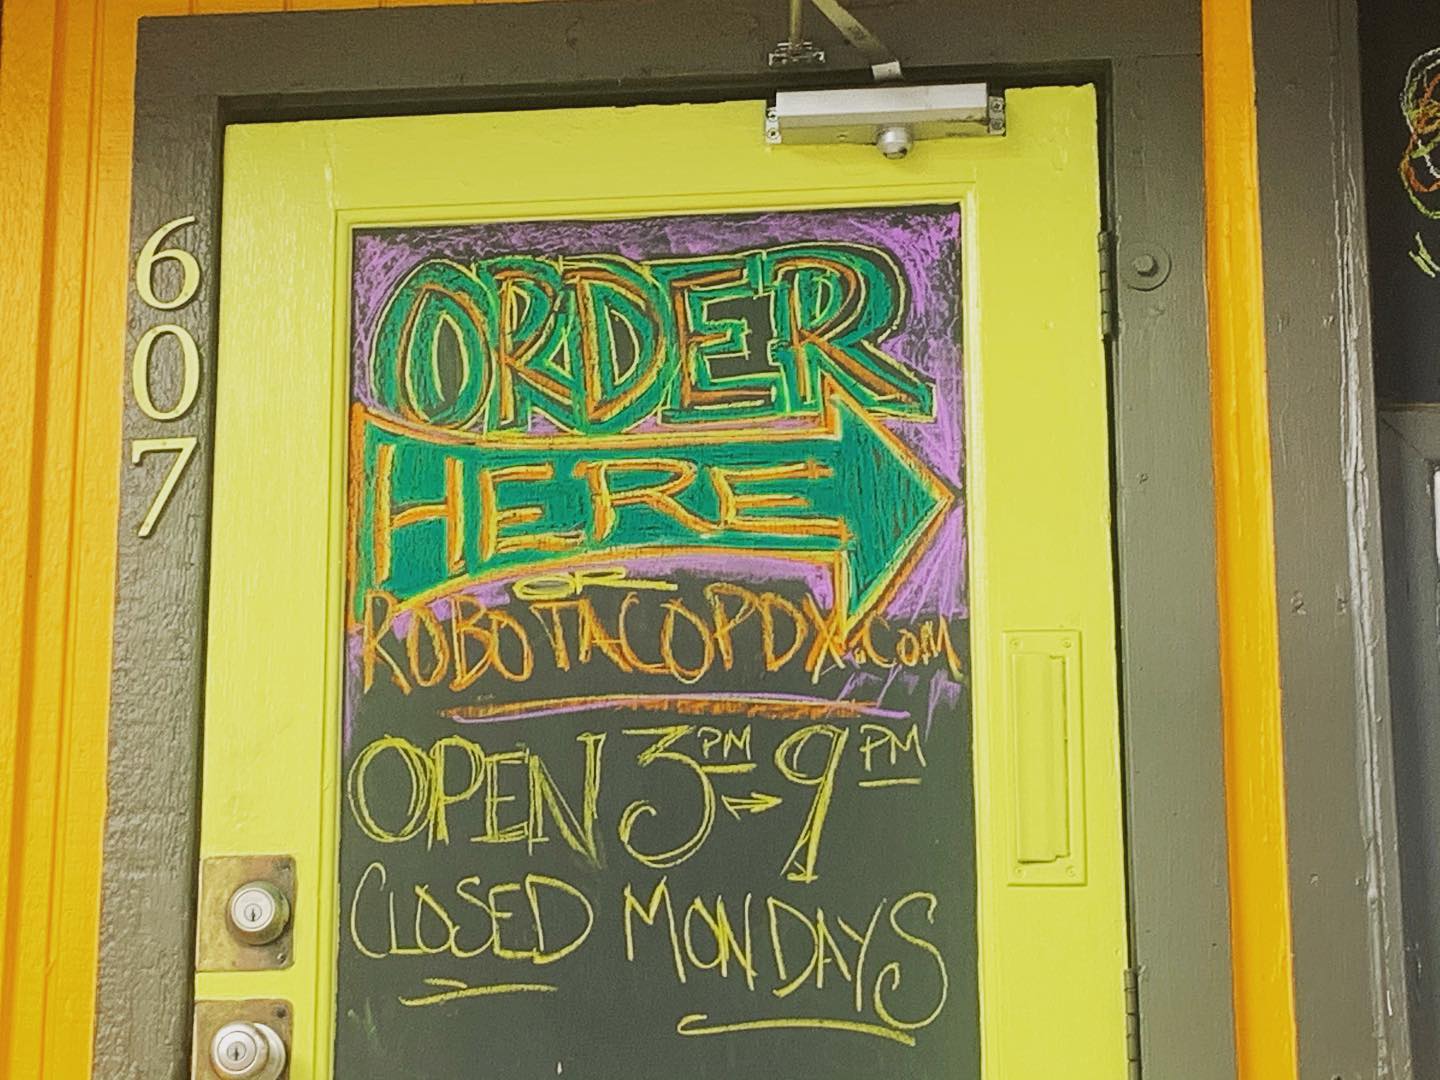 607
ORDER
HERE
OR
ROBOTACOPDX.COM
OPEN 3PM → 9PM
CLOSED MONDAYS